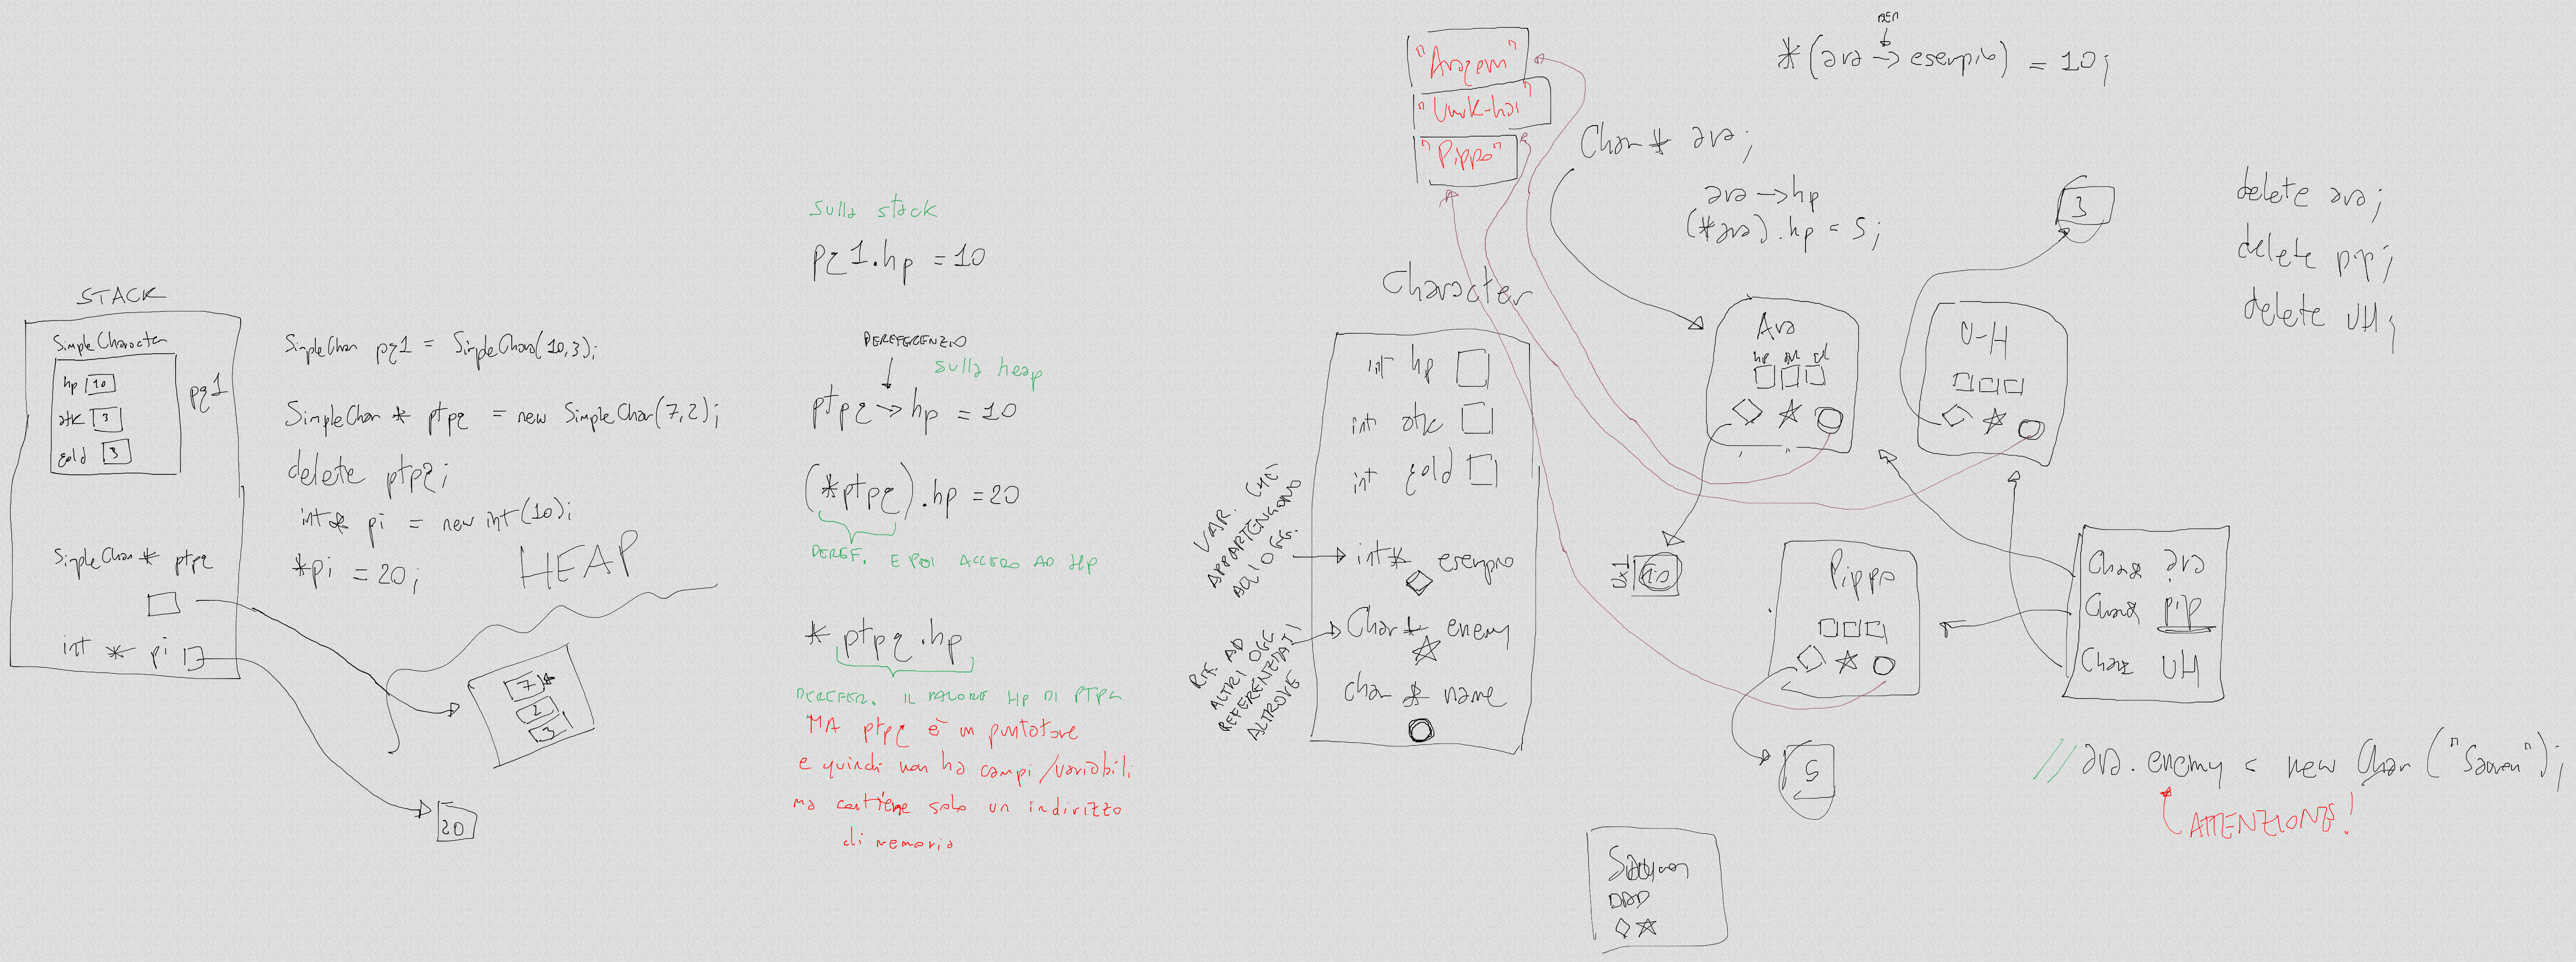 STACK
SimpleCharacter
hp 10
atk 3
gold 3
pg1
SimpleChar * ptpg
int * pi
SimpleChar pg1 = SimpleChar(10,3);
SimpleChar * ptpg = new SimpleChar(7,2);
delete ptpg;
int* pi = new int(10);
*pi = 20;
HEAP
7
2
3
20
sulla stack
pg1.hp = 10
DEREFERENZIO
sulla heap
ptpg -> hp = 10
(*ptpg).hp = 20
DEREF. E POI ACCEDO AD HP
* ptpg.hp
DEREFER. IL VALORE HP DI PTPG
MA ptpg è un puntatore
e quindi non ha campi/variabili
ma contiene solo un indirizzo
di memoria
"Aragorn"
"Uruk-hai"
"Pippo"
Character
int hp
int atk
int gold
int* esempio
Char * enemy
char * name
VAR. CHE
APPARTENGONO
AGLI OGG.
RIF. AD
ALTRI OGG
REFERENZIATI
ALTROVE
*(ara -> esempio) = 10;
Char * ara;
ara -> hp
(*ara).hp = 5;
Ara
hp
U-H
3
10
Pippo
5
Char* ara
Char* pip
Char* UH
delete ara;
delete pip;
delete UH;
// ara.enemy = new Char("Sauron");
ATTENZIONE!